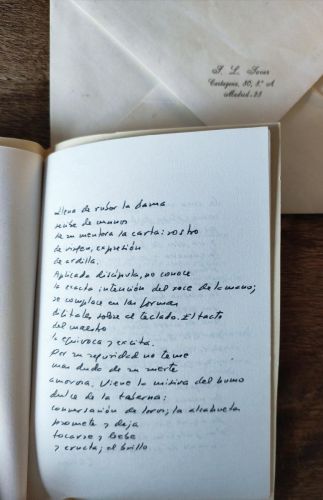 J. L. Jover
Cartagena, 80, 1.º A
Madrid-28
Llena de rubor la dama
recibe de manos
de su mentora la carta: rostro
de virgen, expresión
de ardilla.
Aplicada discípula, no conoce
la exacta intención del roce de la mano;
se complace en las formas
dibitales sobre el teclado. El tacto
del maestro
la equivoca y excita.
Por su seguridad no teme
mas duda de su suerte
amorosa. Viene la misiva del humo
dulce de la taberna:
conversación de loros; la alcahueta
promete y deja
tocarse y bebe
y eructa; el brillo